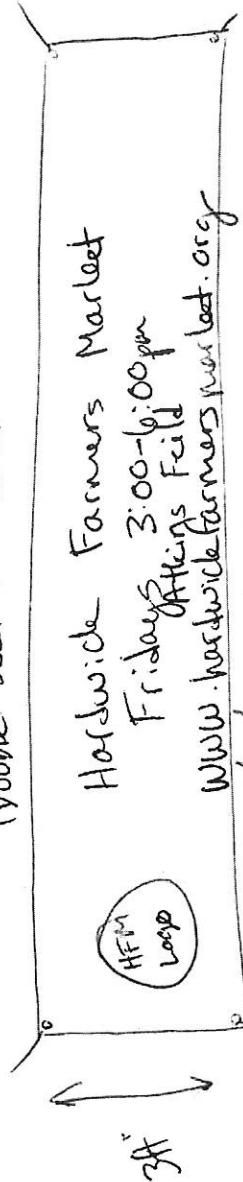 Hardwick Farmers Market
Fridays 3:00-6:00pm
@Atkins Feild
www.hardwickfarmersmarket.org
HFM
Logo
3ft